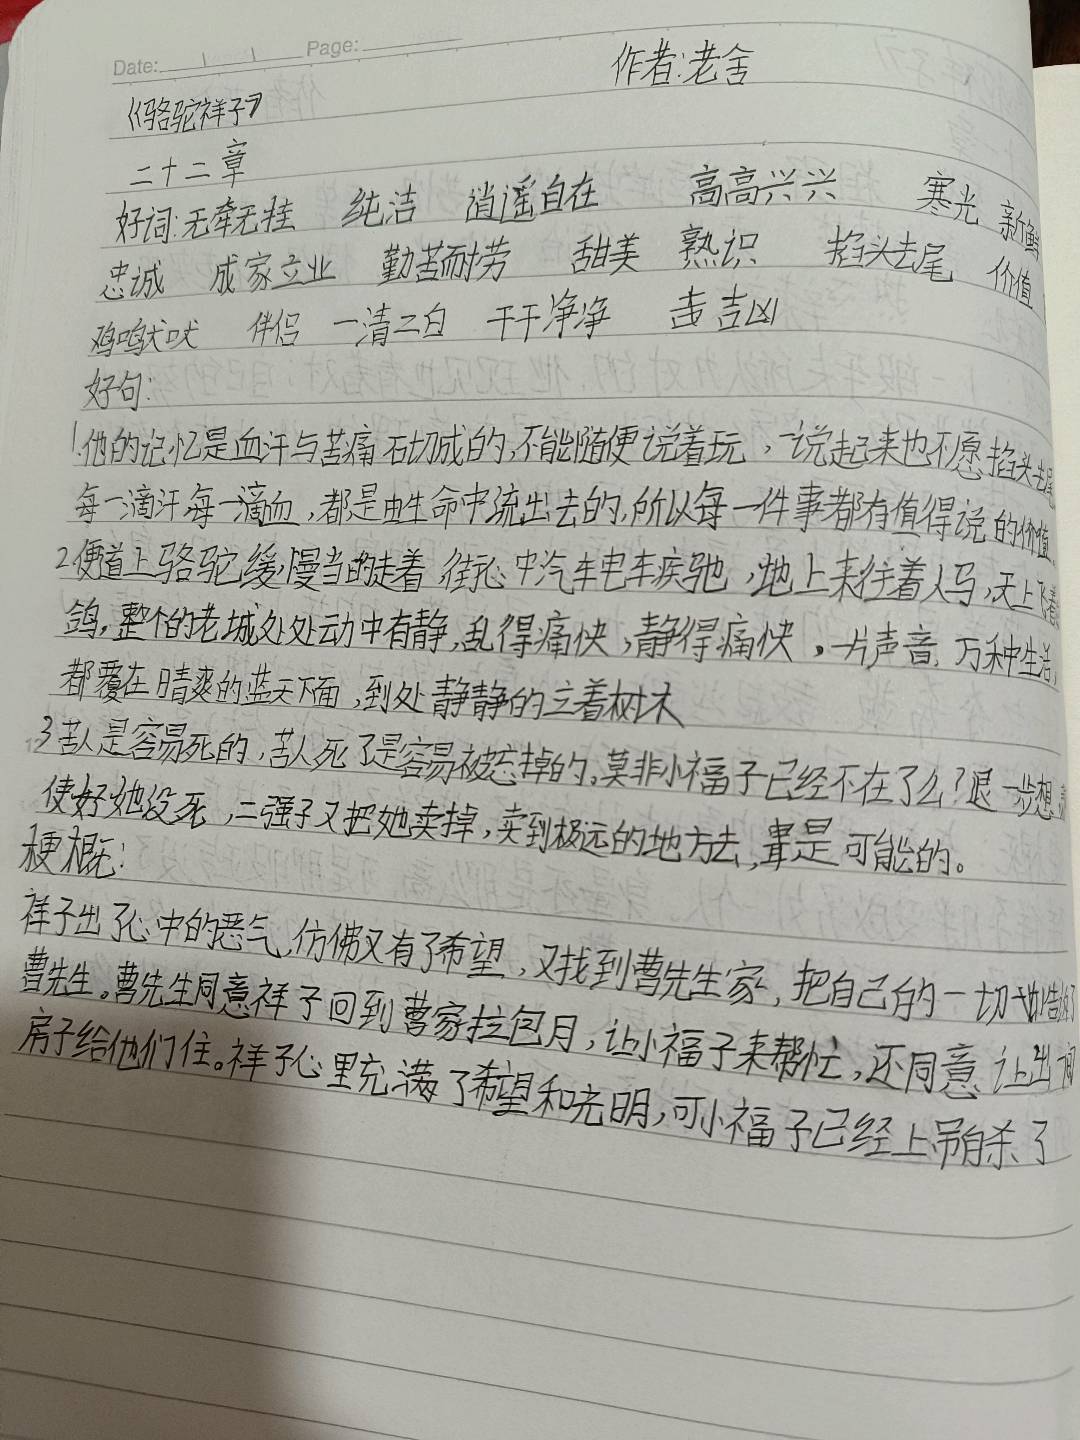 Date: Page:
作者:老舍
《骆驼祥子》
二十二章
好词:无牵无挂 纯洁 逍遥自在 高高兴兴 寒光 新鲜
忠诚 成家立业 勤苦耐劳 甜美 熟识 掐头去尾 价值
鸡鸣犬吠 伴侣 一清二白 干干净净 吉凶
好句:
1.他的记忆是血汗与苦痛砌成的,不能随便说着玩,一说起来也不愿掐头去尾
每一滴汗每一滴血,都是由生命中流出去的,所以每一件事都有值得说的价值.
2.便道上骆驼缓慢当的走着 街心中汽车电车疾驰,地上来往着人马,天上飞着
鸽,整个的老城处处动中有静,乱得痛快,静得痛快,一片声音,万种生活,
都覆在晴爽的蓝天下面,到处静静的立着树木
3苦人是容易死的,苦人死了是容易被忘掉的,莫非小福子已经不在了么?退一步想,
使好她没死,二强子又把她卖掉,卖到极远的地方去,是可能的。
梗概:
祥子出了心中的恶气,仿佛又有了希望,又找到曹先生家,把自己的一切
曹先生。曹先生同意祥子回到曹家拉包月,让小福子来帮忙,还同意让出间
房子给他们住。祥子心里充满了希望和光明,可小福子已经上吊自杀了